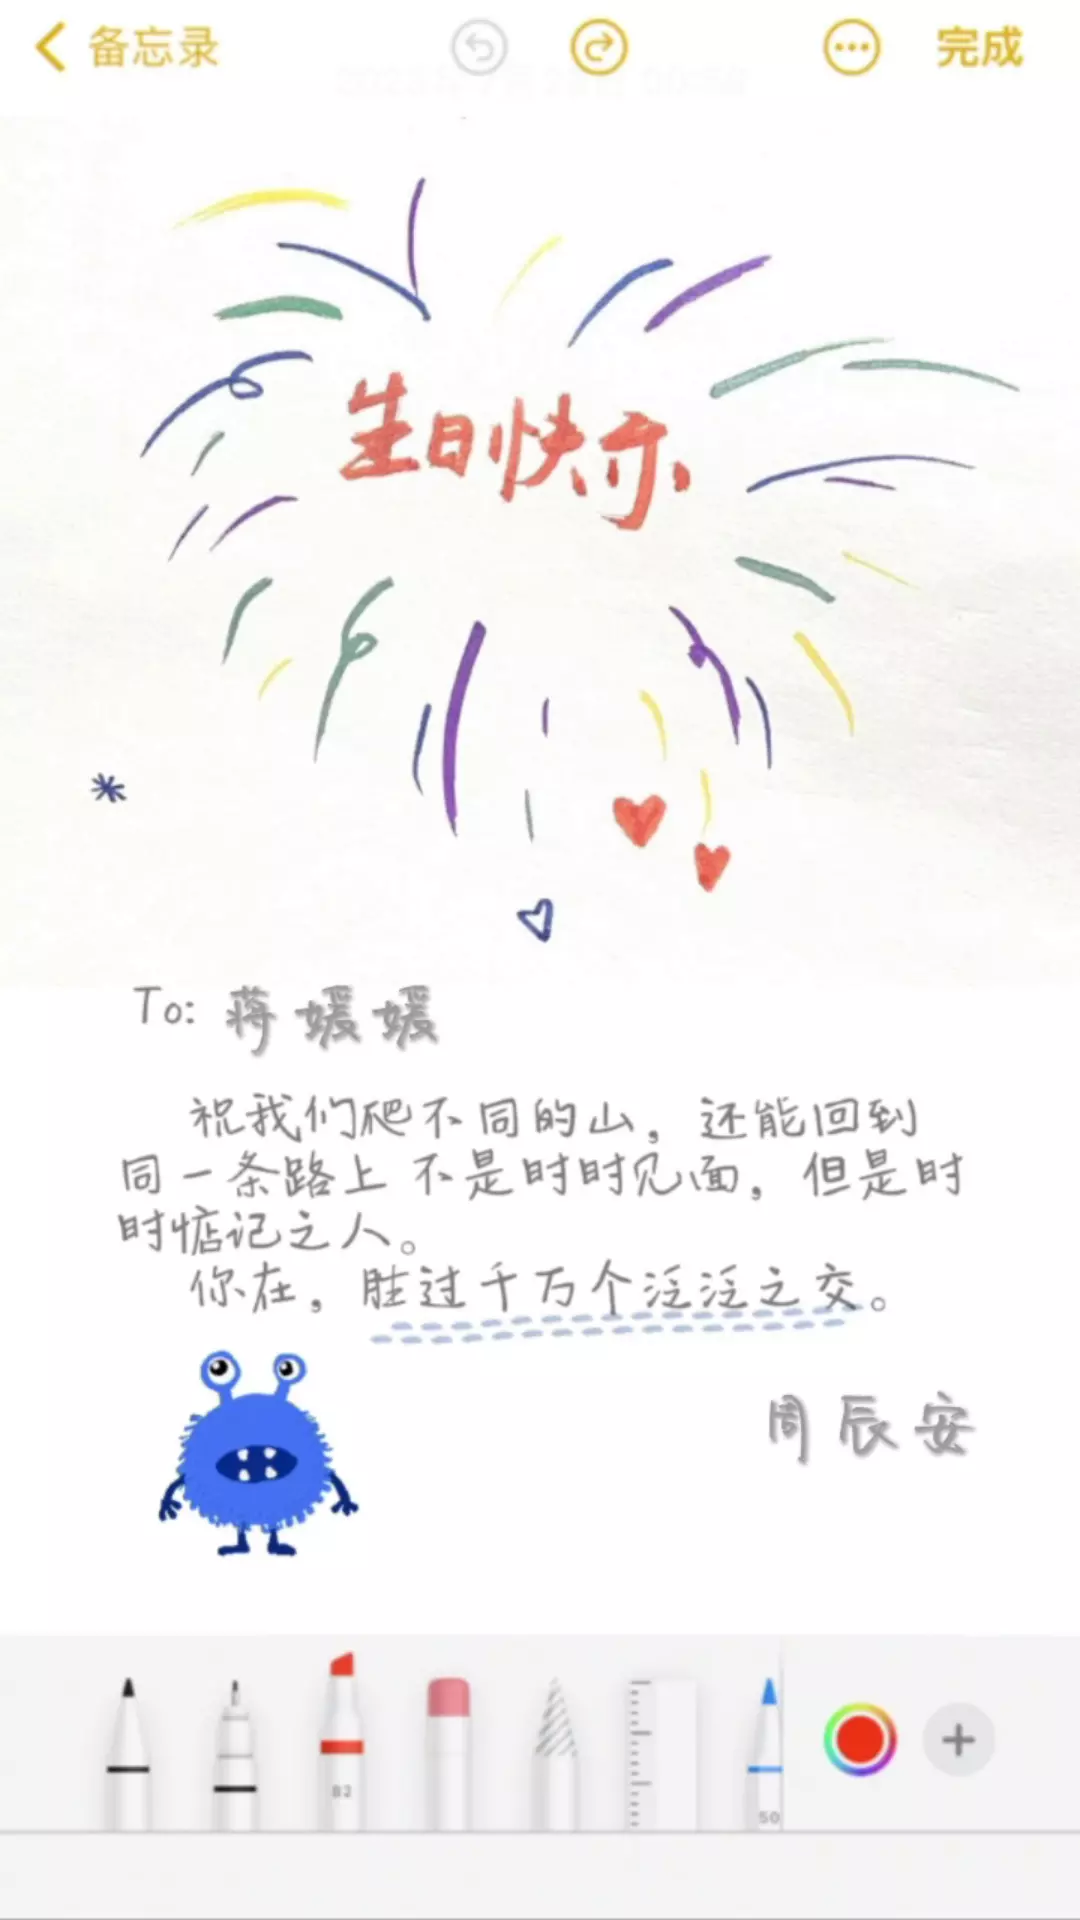 备忘录
完成
生日快乐
To: 蒋媛媛
祝我们爬不同的山，还能回到
同一条路上 不是时时见面，但是时
时惦记之人。
你在，胜过千万个泛泛之交。
周辰安
82
50